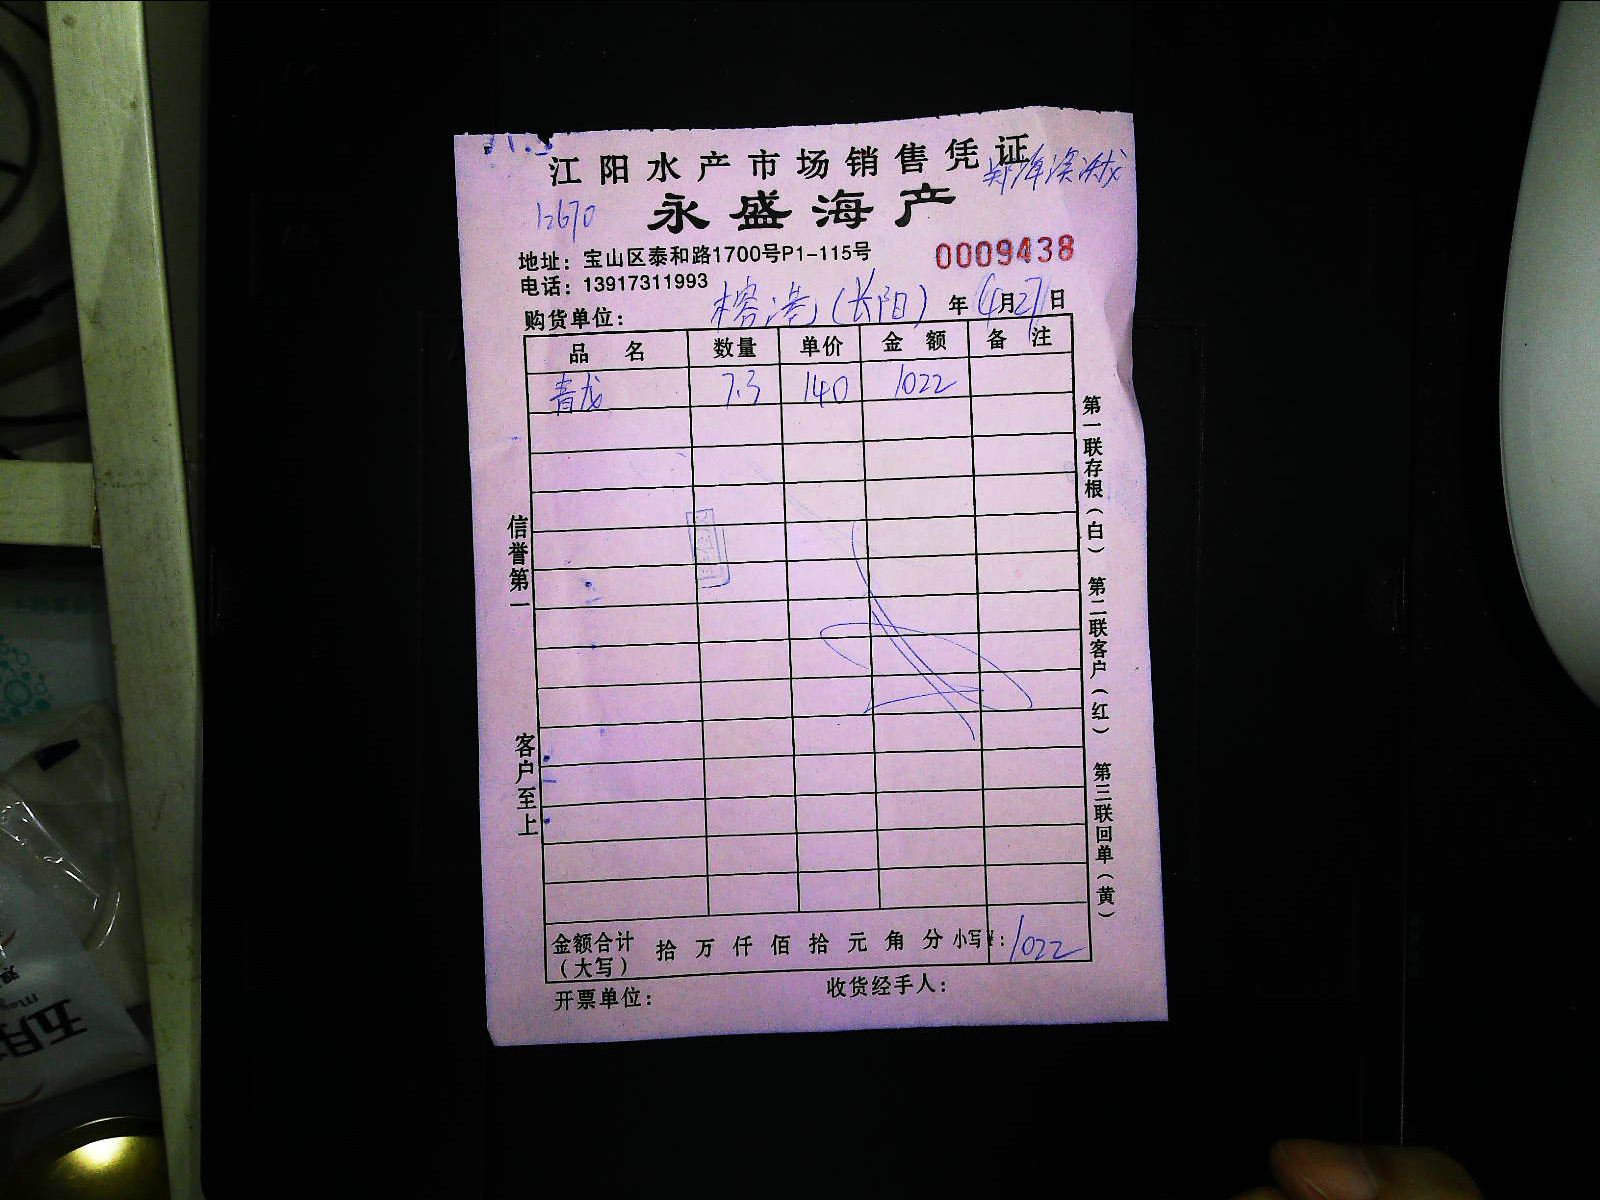 江阳水产市场销售凭证
12670
永盛海产
地址：宝山区泰和路1700号P1-115号
0009438
电话：13917311993
购货单位：榕港（长阳） 年4月27日
品名 数量 单价 金额 备注
青龙 7.3 140 1022
信誉第一
客户至上
第一联存根（白）
第二联客户（红）
第三联回单（黄）
金额合计（大写） 拾 万 仟 佰 拾 元 角 分 小写¥：1022
开票单位：
收货经手人：
五月